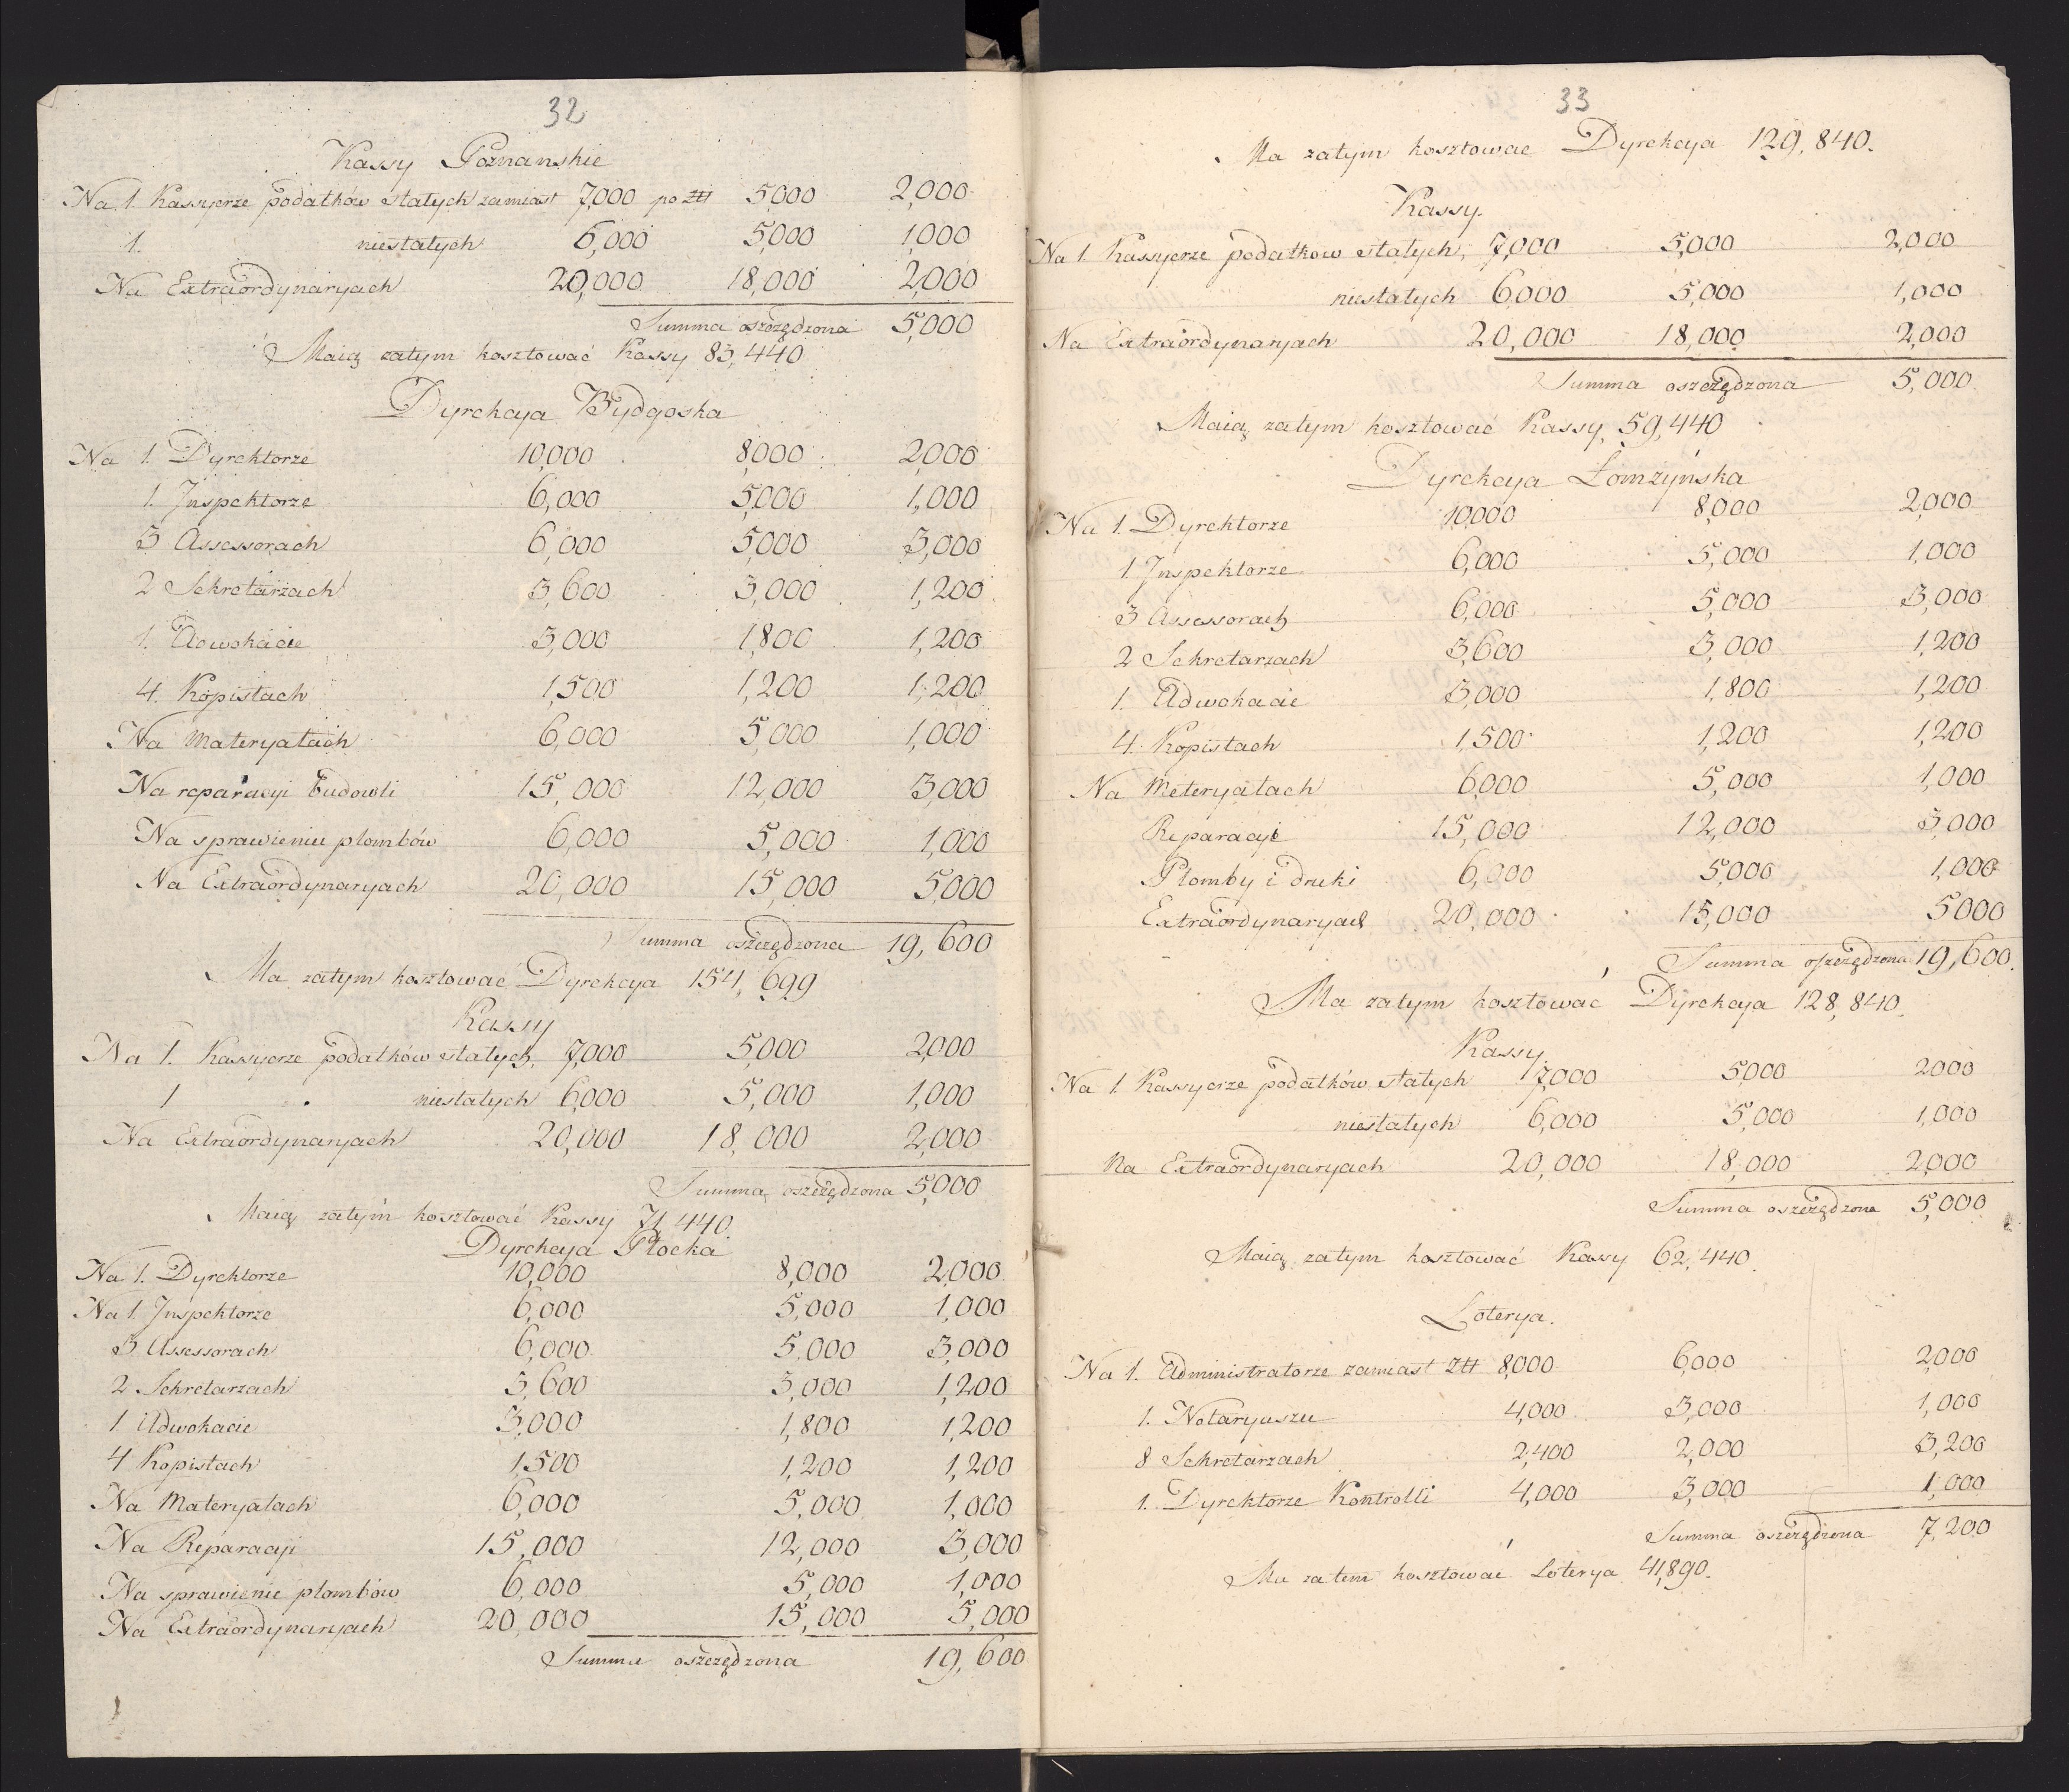 32
Kassy Poznanskie
Na 1. Kassyerze podatków stałych zamiast 7,000 po Złł 5,000 2,000
1. niestałych 6,000 5,000 1,000
Na Extraordynaryach 20,000 18,000 2,000
Summa oszczędzona 5,000
Maią zatym kosztować Kassy 83,440
Dyrekcya Bydgoska
Na 1. Dyrektorze 10,000 8,000 2,000
1. Inspektorze 6,000 5,000 1,000
3 Assessorach 6,000 5,000 3,000
2 Sekretarzach 3,600 3,000 1,200
1. Adwokacie 3,000 1,800 1,200
4. Kopistach 1,500 1,200 1,200
Na Materyałach 6,000 5,000 1,000
Na reparacyi budowli 15,000 12,000 3,000
Na sprawieniu plombów 6,000 5,000 1,000
Na Extraordynaryach 20,000 15,000 5,000
Summa oszczędzona 19,600
Ma zatym kosztować Dyrekcya 154,699
Kassy
Na 1. Kassyerze podatków stałych 7,000 5,000 2,000
1 niestałych 6,000 5,000 1,000
Na Extraordynaryach 20,000 18,000 2,000
Summa oszczędzona 5,000
Maią zatym kosztować Kassy 71,440.
Dyrekcya Płocka
Na 1. Dyrektorze 10,000 8,000 2,000
Na 1. Inspektorze 6,000 5,000 1,000
3 Assessorach 6,000 5,000 3,000
2 Sekretarzach 3,600 3,000 1,200
1 Adwokacie 3,000 1,800 1,200
4 Kopistach 1,500 1,200 1,200
Na Materyałach 6,000 5,000 1,000
Na Reparacyi 15,000 12,000 3,000
Na sprawienie plombów 6,000 5,000 1,000
Na Extraordynaryach 20,000 15,000 5,000
Summa oszczędzona 19,600
33
Ma zatym kosztować Dyrekcya 129,840.
Kassy.
Na 1. Kassyerze podatkow stałych, 7,000 5,000 2,000
niestałych 6,000 5,000 1,000
Na Extraordynaryach 20,000 18,000 2,000
Summa oszczędzona 5,000
Maią zatym kosztować Kassy 59,440
Dyrekcya Łomżyńska
Na 1. Dyrektorze 10,000 8,000 2,000
1. Inspektorze 6,000 5,000 1,000
3 Assessorach 6,000 5,000 3,000
2 Sekretarzach 3,600 3,000 1,200
1. Adwokacie 3,000 1,800 1,200
4. Kopistach 1,500 1,200 1,200
Na Meteryałach 6,000 5,000 1,000
Reparacyi 15,000 12,000 3,000
Plomby i druki 6,000 5,000 1,000
Extraordynaryach 20,000 15,000 5000
Summa oszczędzona 19,600.
Ma zatym kosztować Dyrekcya 128,840.
Kassy
Na 1 Kassyerze podatków stałych 7,000 5,000 2000
niestałych 6,000 5,000 1,000
Na Extraordynaryach 20,000 18,000 2,000
Summa oszczędzona 5,000
Maią zatym kosztować Kassy 62,440.
Loterya.
Na 1. Administratorze zamiast Złł 8,000 6,000 2,000
1. Notaryuszu 4,000 3,000 1,000
8 Sekretarzach 2,400 2,000 3,200
1. Dyrektorze Kontrolli 4,000 3,000 1,000
Summa oszczędzona 7,200
Ma zatem kosztować Loterya 41,890.